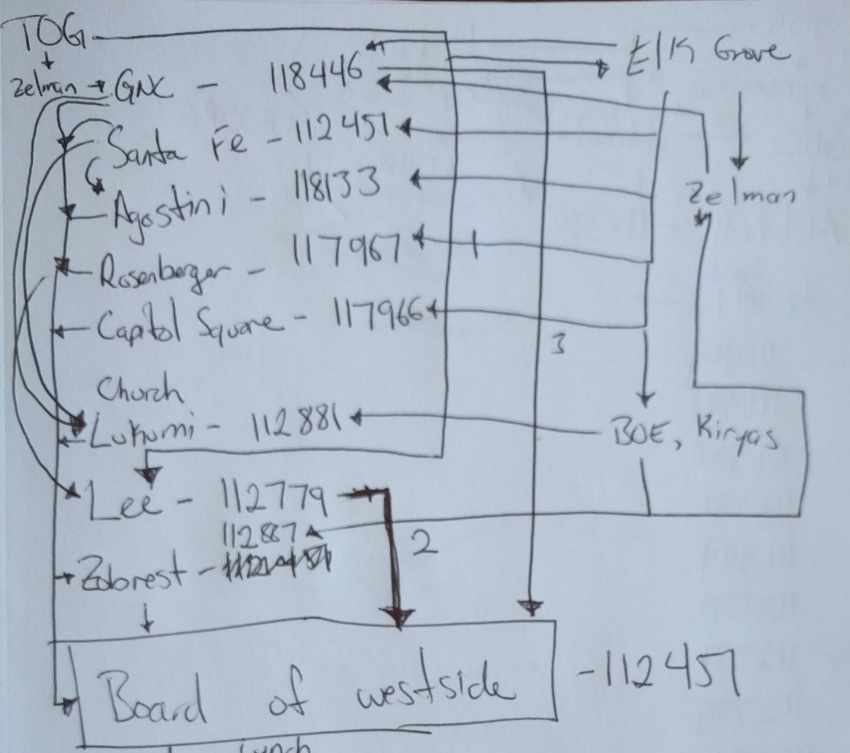 TOG
Elk Grove
Zelman GNC - 118446
Santa Fe - 112451
Agostini - 118133
Zelman
Rosenberger - 117967
1
Capitol Square - 117966
3
Church
Lukumi - 112881
BOE, Kiryas
Lee - 112779
112887
2
Zobrest -
Board of westside - 112451
Lynch